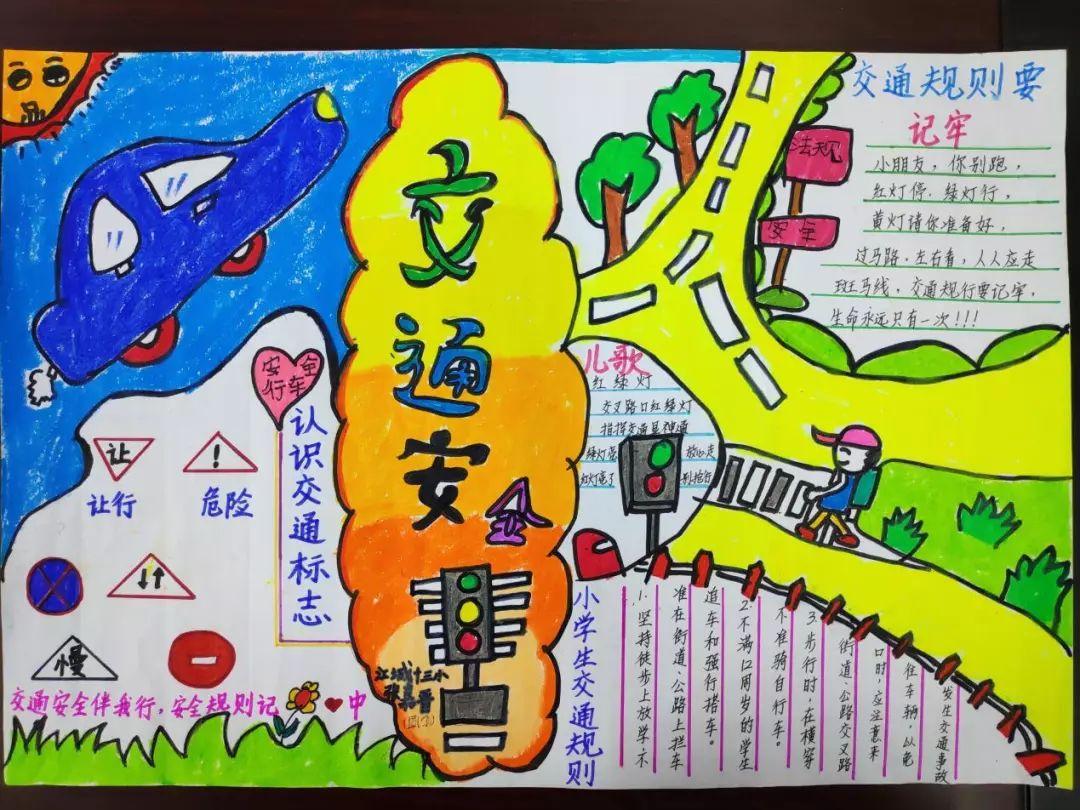 交通安全
安全
行车
认识交通标志
让
让行
!
危险
慢
交通安全伴我行，安全规则记
中
江城十三小
交通规则要
记牢
小朋友，你别跑，
红灯停、绿灯行，
黄灯请你准备好，
过马路、左右看，人人应走
斑马线，交通规行要记牢，
生命永远只有一次!!!
法规
安全
儿歌
红绿灯
交叉路口红绿灯
指挥交通显神通
绿灯亮 放心走
红灯亮了 别抢行
小学生交通规则
1.坚持徒步上放学不
准在街道、公路上拦车
追车和强行搭车。
2.不满12周岁的学生
不准骑自行车。
3.步行时，在横穿
街道、公路交叉路
口时，应注意来
往车辆，以免
发生交通事故